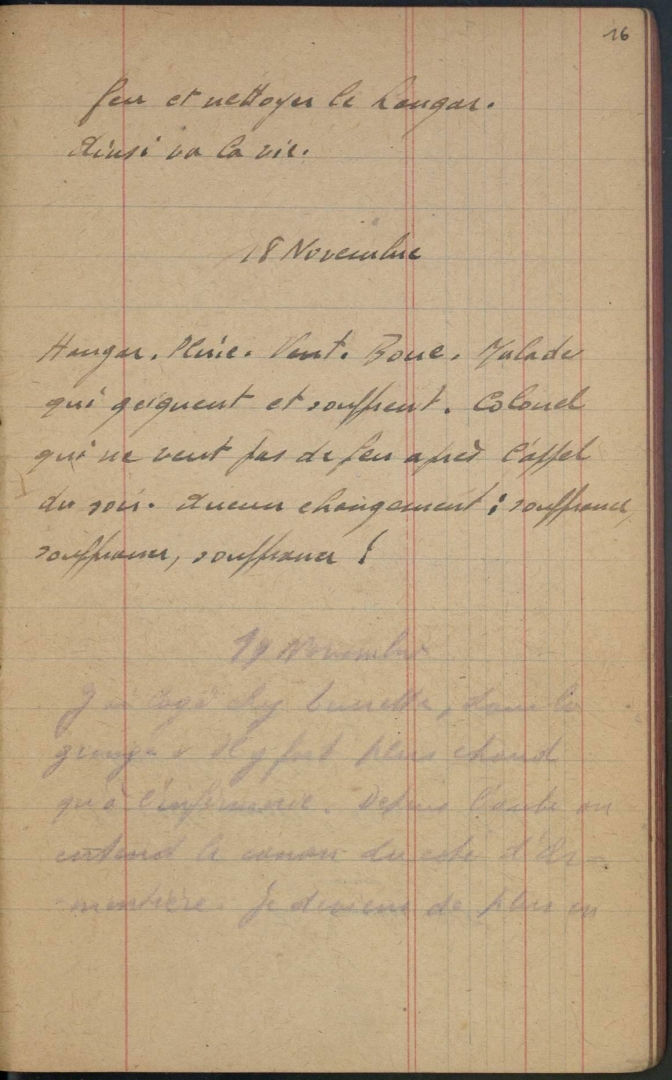 16
feu et nettoyer le hangar.
Ainsi va la vie.
18 Novembre
Hangar. Pluie. Vent. Boue. Malade
qui geignent et souffrent. Colonel
qui ne veut pas de feu après l'appel
du soir. Aucun changement : souffrance,
souffrance, souffrance !
19 Novembre
J'ai logé chez , dans la
grange. Il y fait plus chaud
qu'à l'infirmerie. Depuis l'aube on
entend le canon du côté d'Ar-
mentière. Je deviens de plus en